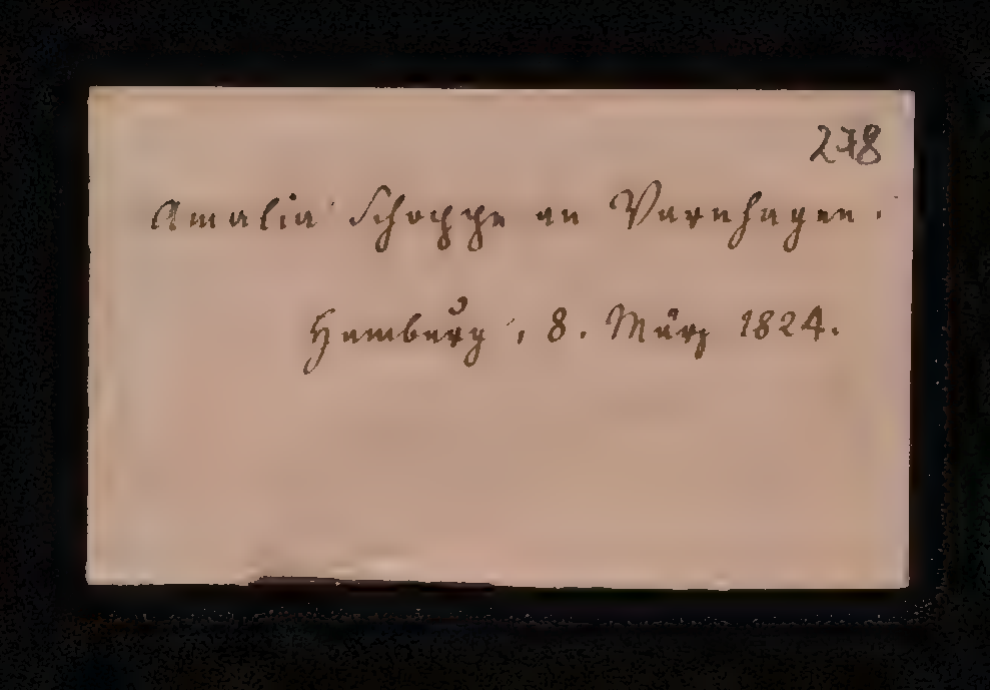 278
Amalia Schoppe an Varnhagen.
Hamburg, 8. März 1824.